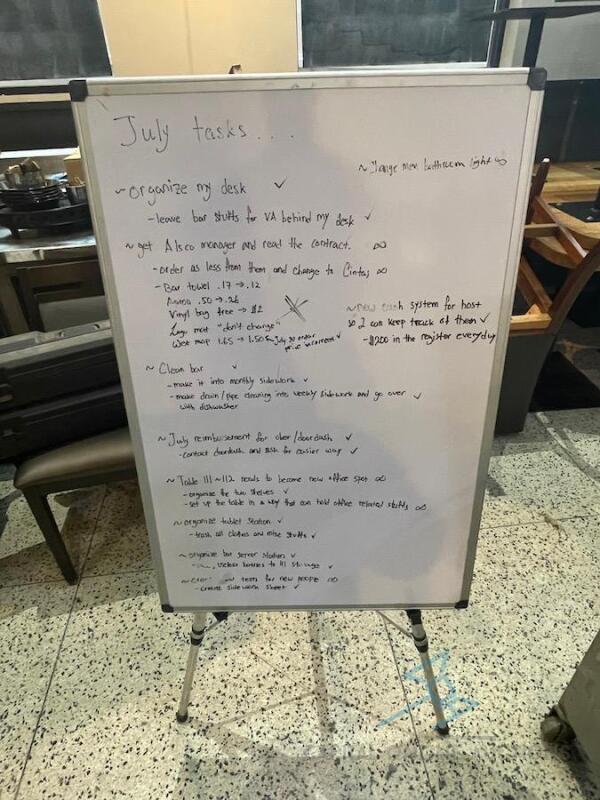 July tasks...
~ Change men bathroom light ∞
~ organize my desk ✓
- leave bar stuffs for VA behind my desk ✓
~ get Alsco manager and read the contract. ∞
- order as less from them and change to Cintas ∞
- Bar towel .17 → .12
.50 → .26
Vinyl bag free → $2
Logo mat "don't change"
Wet mop 1.65 → 1.50
~ new cash system for host
so I can keep track of them ✓
- $200 in the register everyday
~ Clean bar ✓
- make it into monthly sidework ✓
- make drain/pipe cleaning into weekly sidework and go over ✓
with dishwasher
~ July reimbursement for uber/doordash ✓
- contact doordash and ask for easier way ✓
~ Table 111~112 needs to become new office spot ∞
- organize the two shelves ✓
- set up the table in a way that can hold office related stuffs ∞
~ organize tablet station ✓
- trash all clothes and misc stuffs ✓
~ organize bar server station ✓
to 111 storage ✓
tests for new people ∞
- create sidework sheet ✓